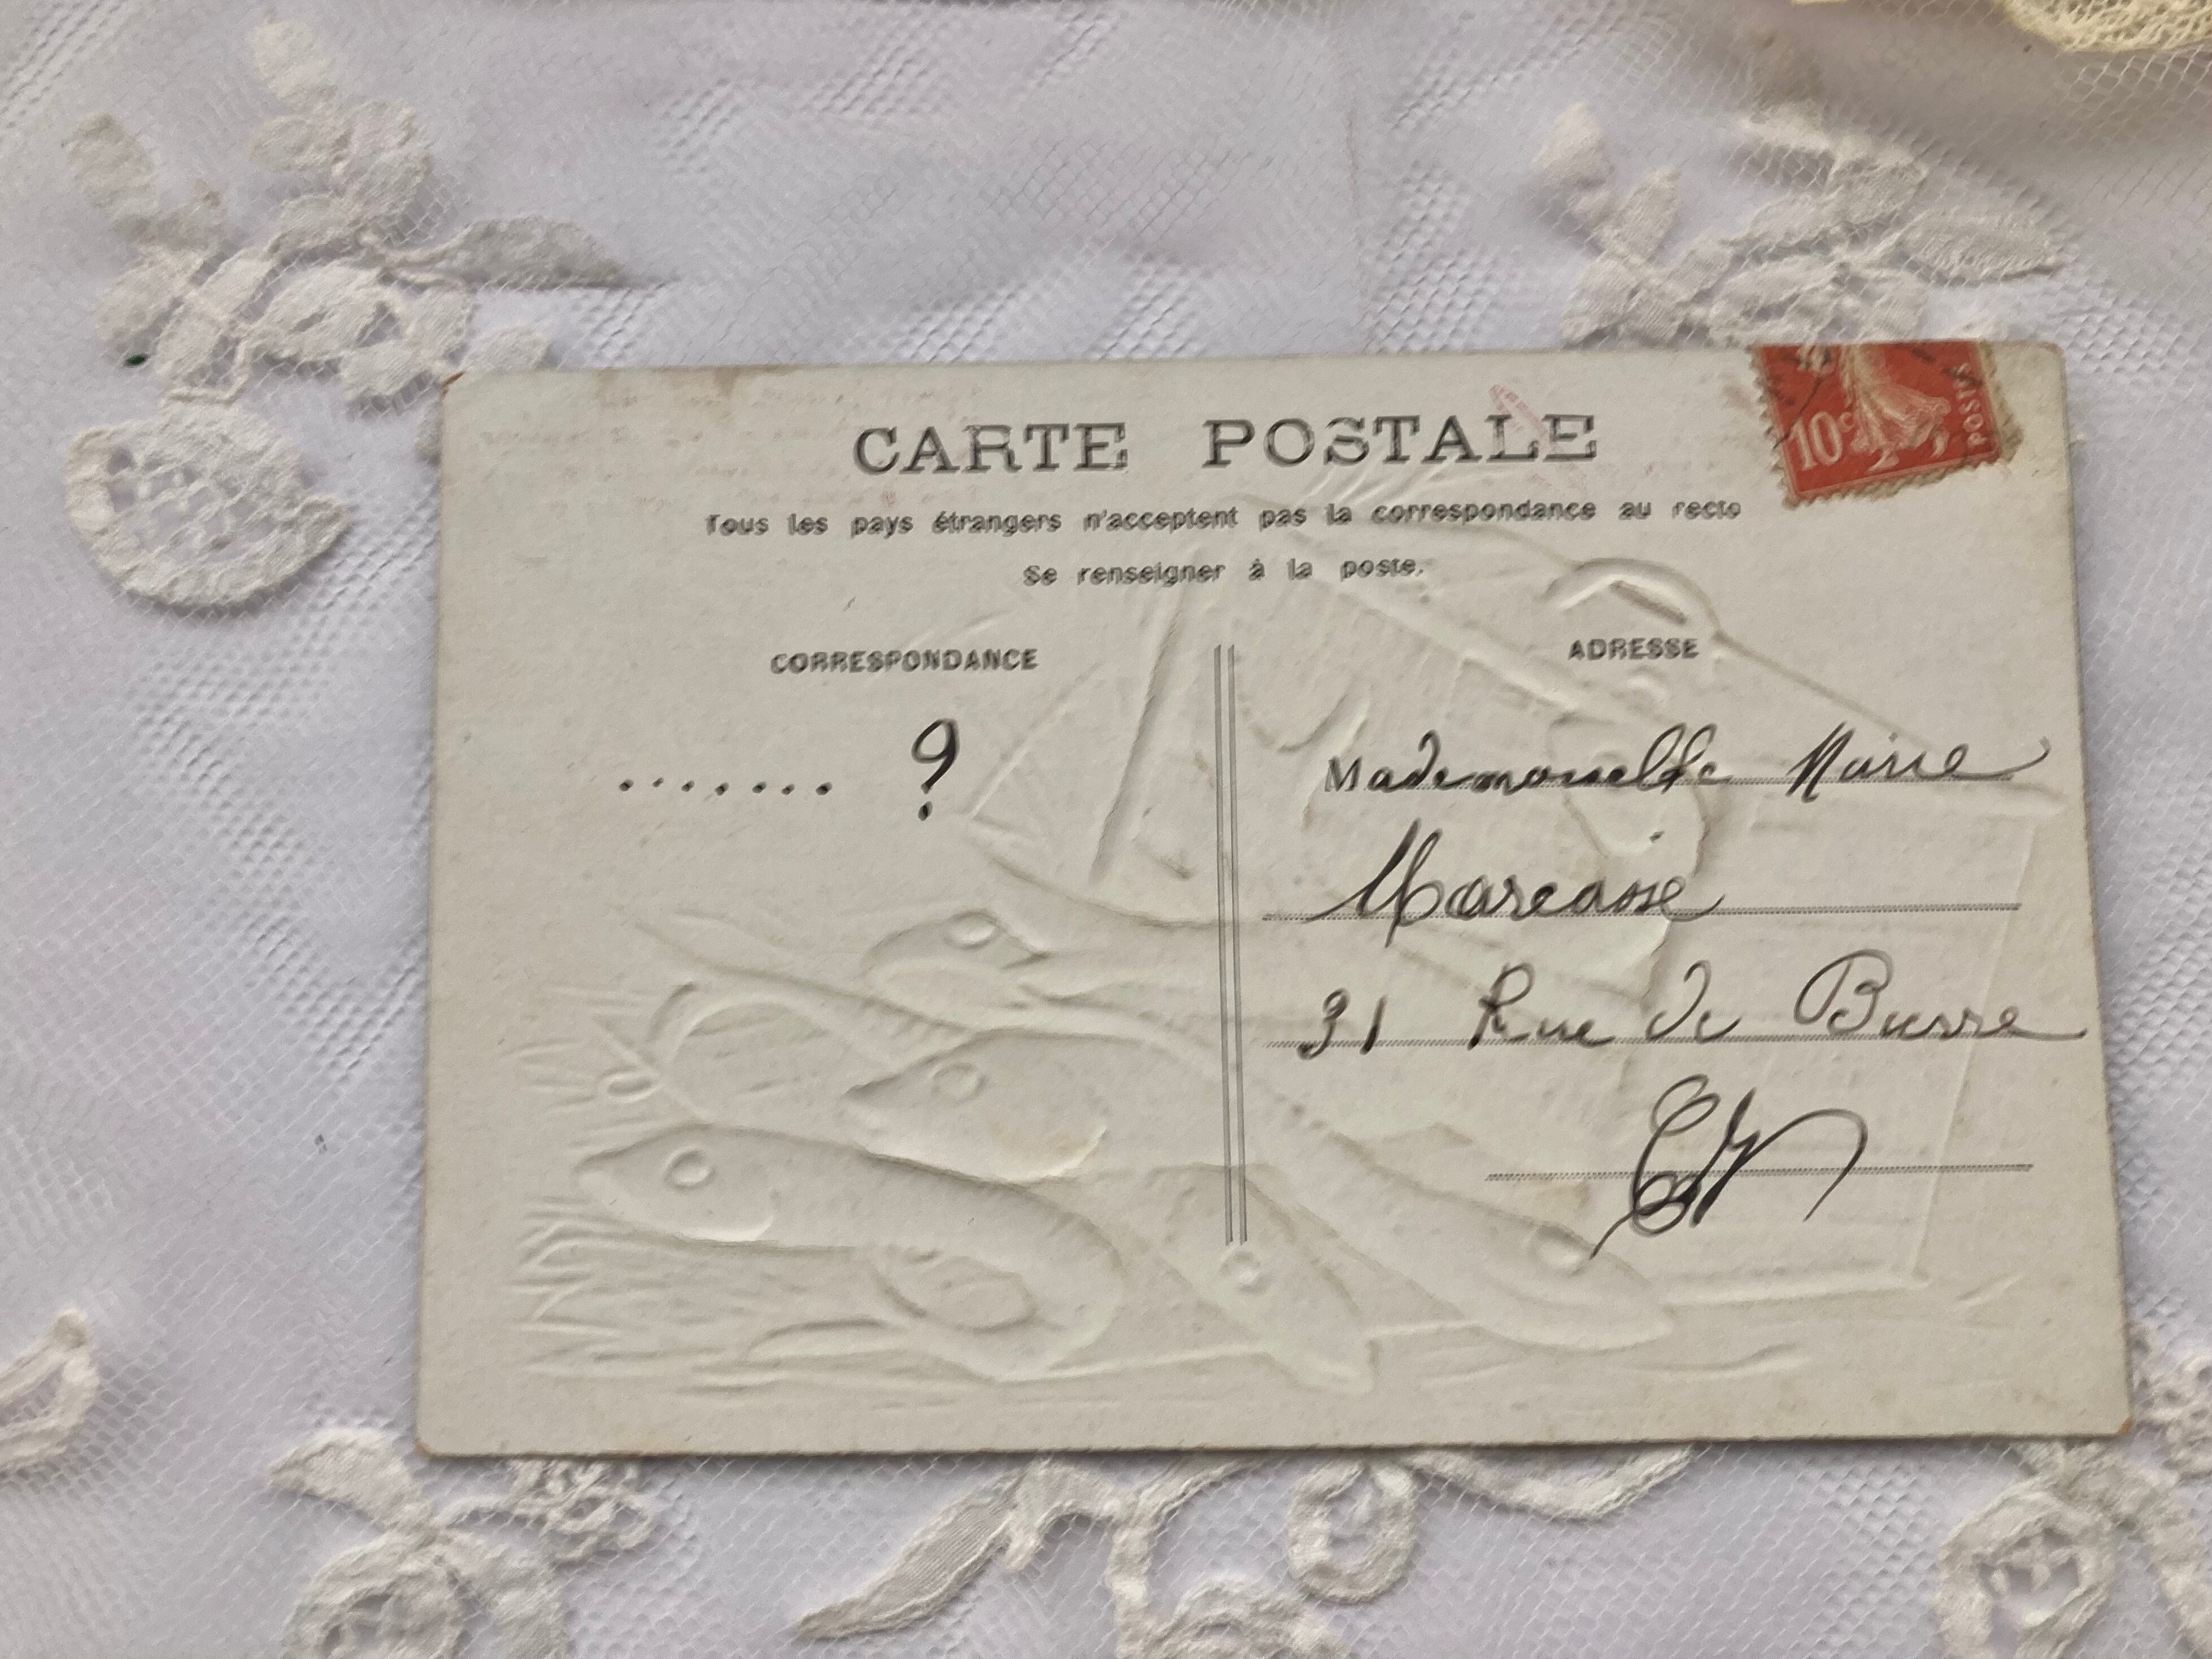 CARTE POSTALE
10c
POSTES
Tous les pays étrangers n'acceptent pas la correspondance au recto
Se renseigner à la poste.
CORRESPONDANCE
ADRESSE
....... ?
Mademoiselle Marie
31 Rue de